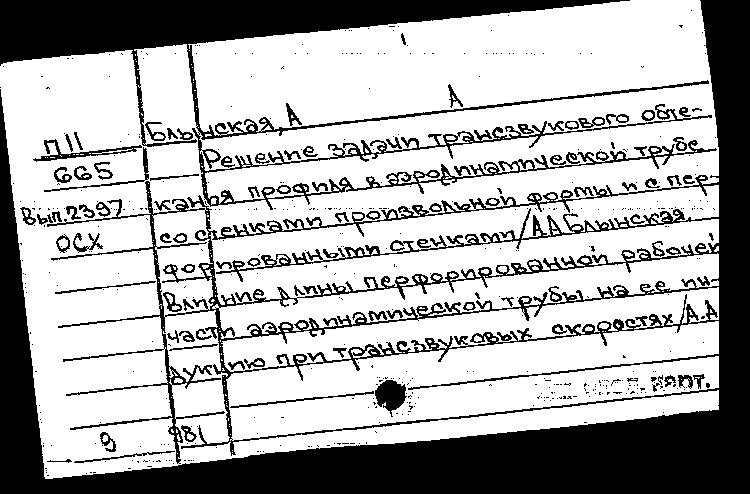 П 11
665
Вып.2397
ОСХ
Блынская, А А
Решение задачи трансзвукового обте-
кания профиля в аэродинамической трубе
со стенками произвольной формы и с пер-
форированными стенками/А.А Блынская.
Влияние длины перфорированной рабочей
части аэродинамической трубы на ее ин-
дукцию при трансзвуковых скоростях/А.А
карт.
9 981